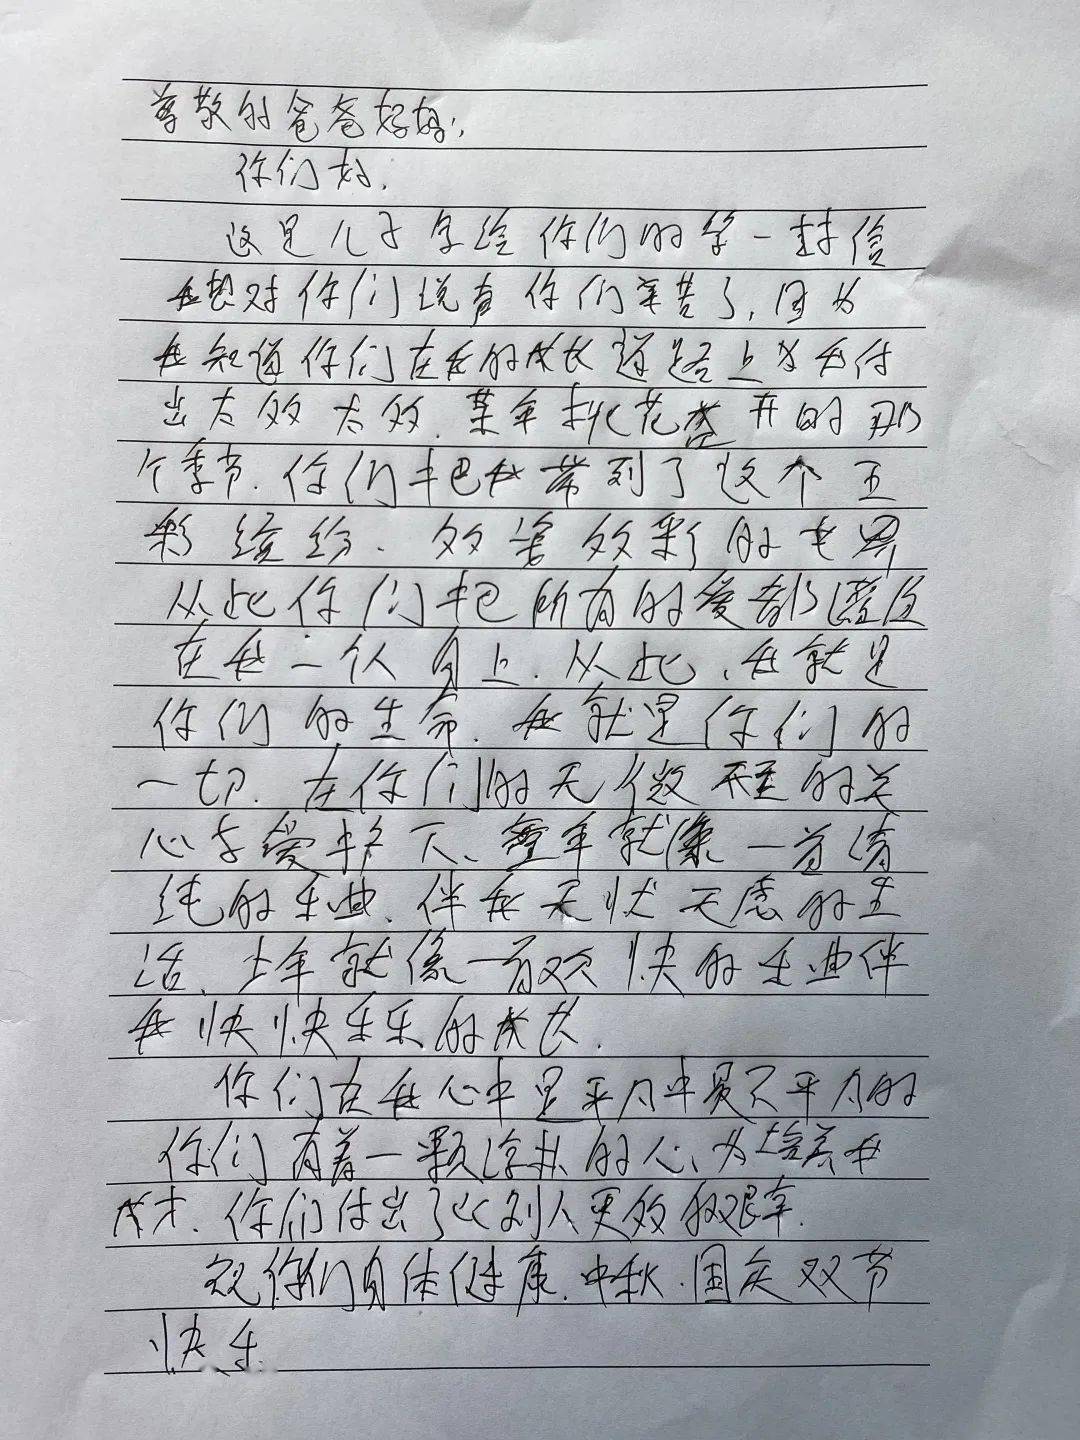 尊敬的爸爸妈妈:
你们好.
这是儿子写给你们的第一封信
我想对你们说声你们辛苦了,因为
我知道你们在我的成长道路上为我付
出太多太多.某年桃花盛开的那
个季节.你们把我带到了这个五
彩缤纷.多姿多彩的世界
从此你们把所有的爱都灌注
在我一个人身上.从此,我就是
你们的生命.我就是你们的
一切.在你们的无微不至的关
心与爱护下、童年就像一首清
纯的乐曲.伴我无忧无虑的生
活、少年就像一首欢快的乐曲伴
我快快乐乐的成长.
你们在我心中是平凡中最不平凡的
你们有着一颗淳朴的心、为培养我
成才.你们付出了比别人更多的艰辛.
祝你们身体健康.中秋.国庆双节
快乐.